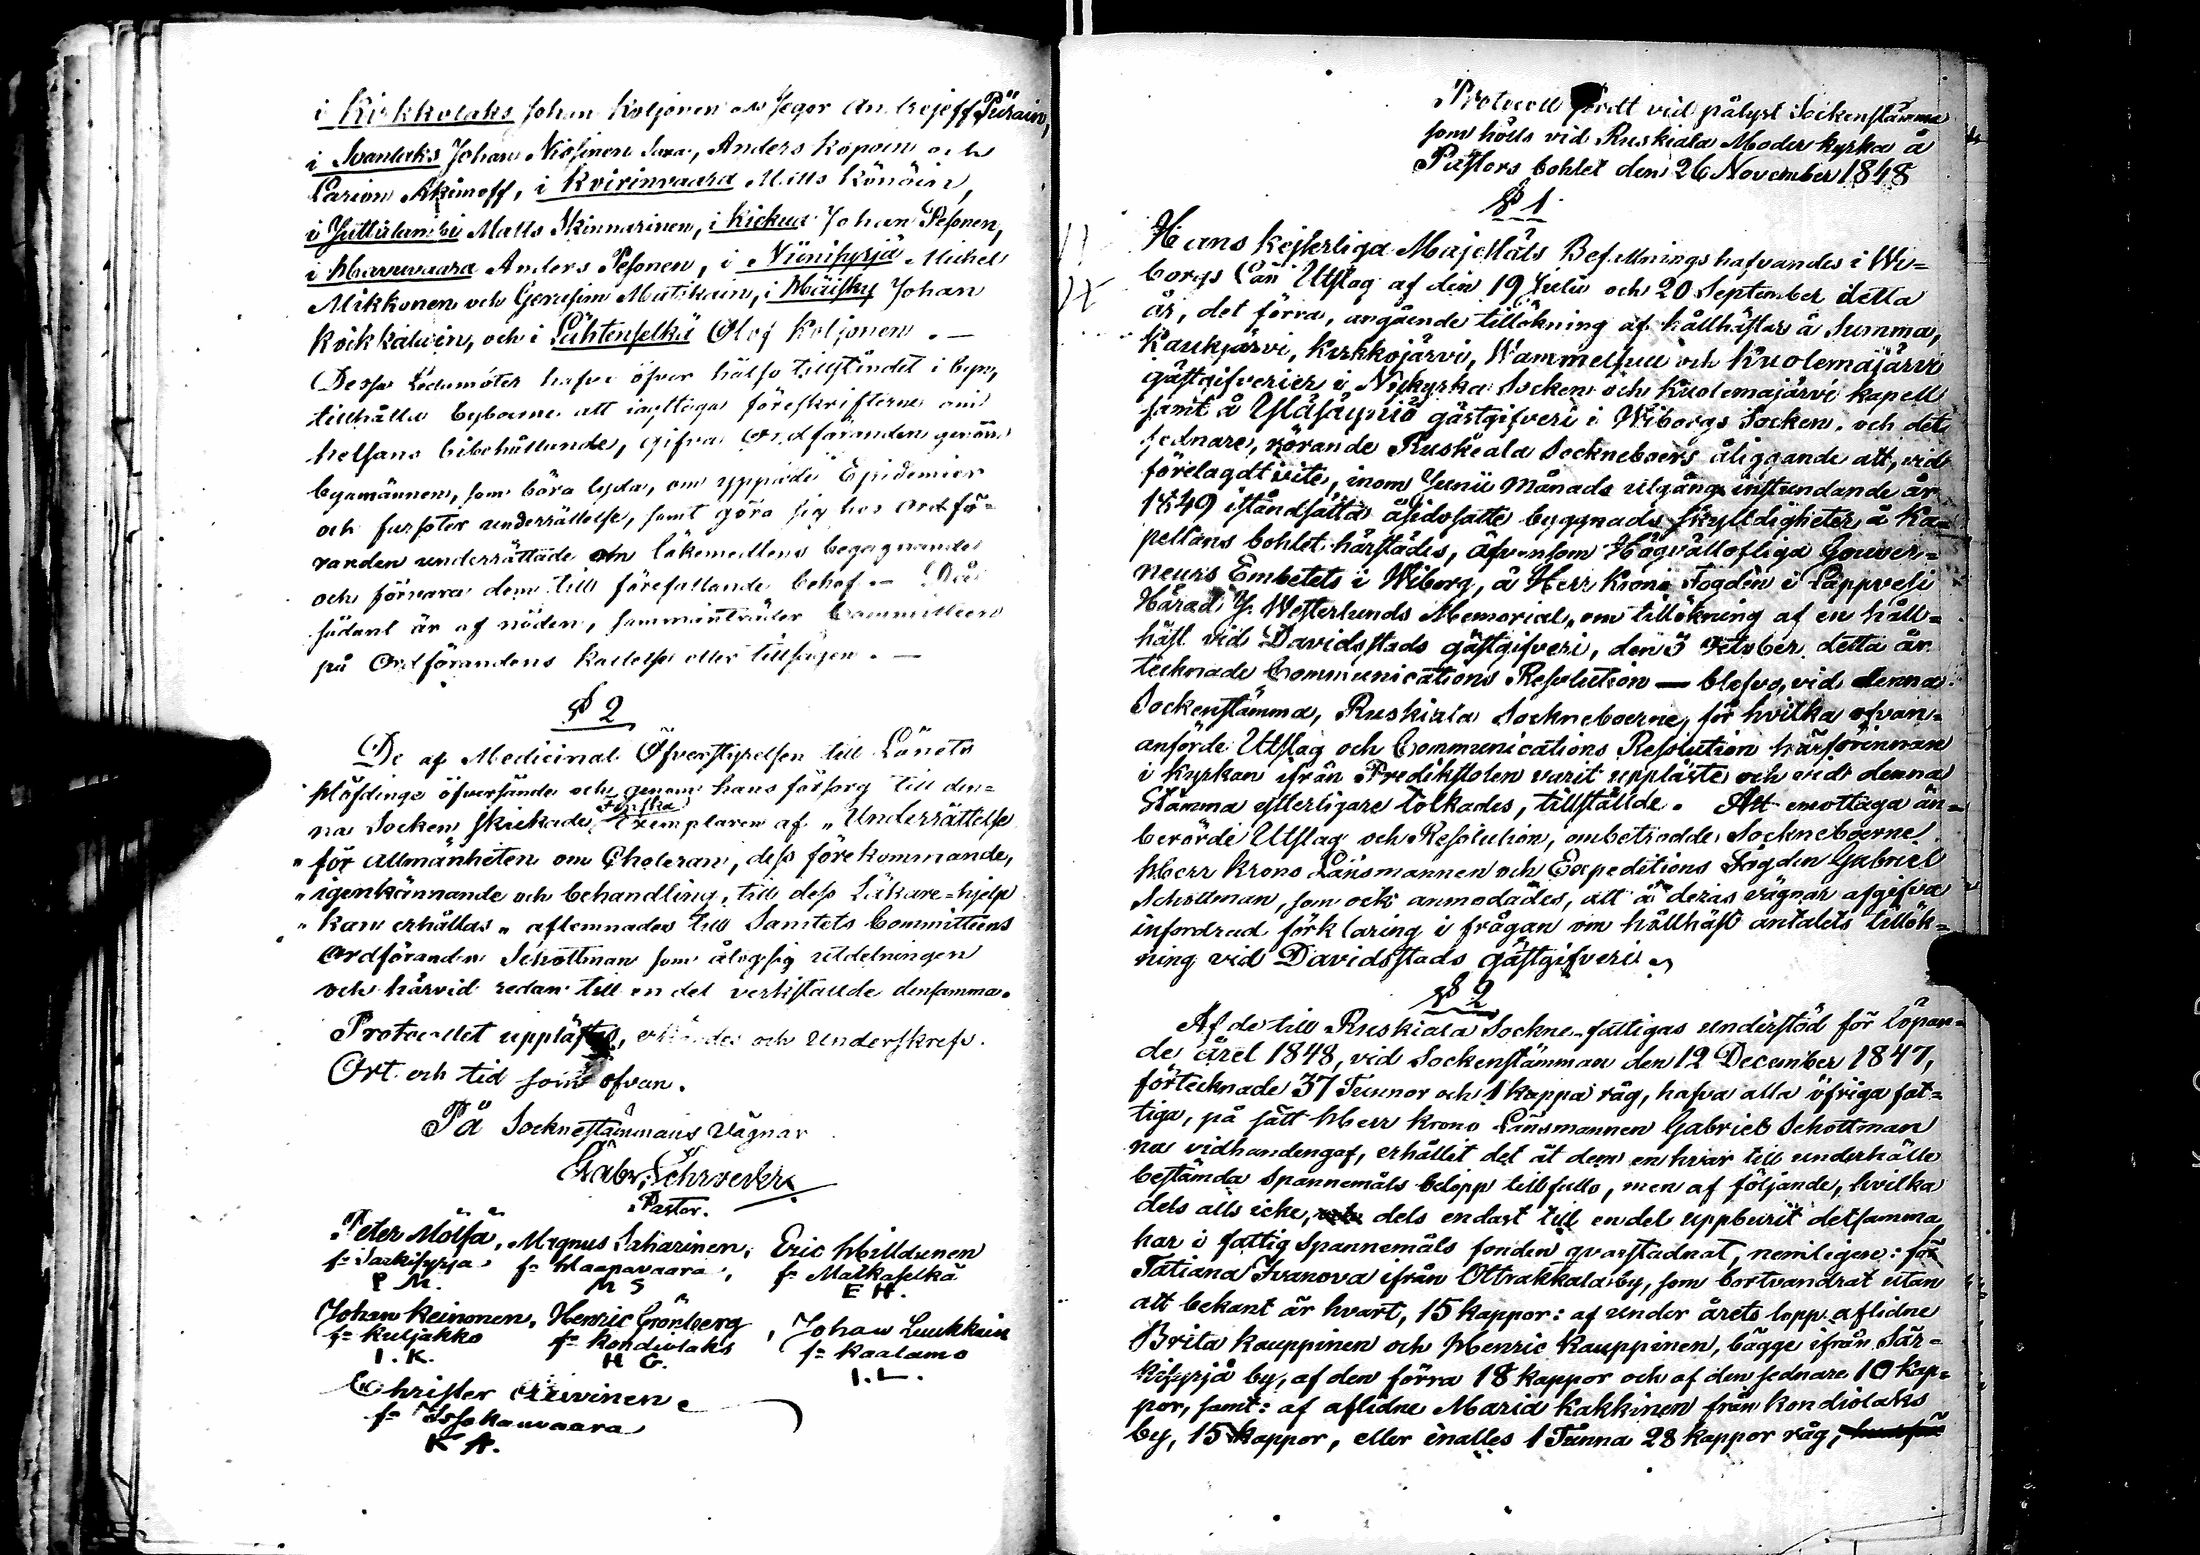 i Kirkkolaks Johan Koljonen och Jegor Andrejeff Püräin,
i Ivanlaks Johan Niosinen Saxa, Anders Koponen och
Larion Akimoff, i Kvirinvaara Matts Könöin,
i Juttulambi Matts Skinnarinen, i Kickua Johan Pesonen,
i Havuvaara Anders Pesonen, i Niinisyrjä Michel
Mikkonen och Gerasim Mutikain, i Häisky Johan
Koikkalain, och i Lahtenselkä Olof Koljonen. —
Desse Ledamöter hafva öfver hälso tillståndet i byn,
tillhålla byboerne att iagttaga föreskrifterne om
helsans bibehållande, gifva Ordföranden genom
byamännen, som böra lyda, om yppade Epidemier
och farsoter underrättelse, samt göra sig hos Ordfö-
randen underrättade om läkemedlens begagnande
och förvara dem till förefallande behof. — När
sådant är af nöden, sammanträder Committeen
på Ordförandens kallelse eller tillsägen. —
§ 2
De af Medicinal Öfverstyrelsen till Länets
Höfdinge öfversände och genom hans försorg till den-
na Socken skickade Finska Exemplaren af „Underrättelse
„för allmänheten om Choleran, dess förekommande,
„igenkännande och behandling, till dess Läkare-hjelp
„kan erhållas„ aflemnades till Sanitets Committeens
Ordföranden Schottman som ålog sig utdelningen
och härvid redan till en del verkställde densamma.
Protocollet upplästes, erkändes och underskrefs.
Ort och tid som ofvan.
På Socknestämmans vägnar
Gabr. Schroeder
Pastor.
Peter Mölsä, Magnus Saharinen, Eric Hilldunen
fr Särkisyrjä fr Haapavaara, fr Matkaselkä
P M. M S E H.
Johan Keinonen, Henric Grönberg, Johan Luukkain
fr Kuljakko fr Kondiolaks fr Kaalamo
I. K. H G. I. L.
Christer Aluvinen
fr Issakanvaara
K A.
Protocoll fördt vid pålyst Sockenstämma
som hölls vid Ruskiala Moder kyrka å
Pastors bohlet den 26 November 1848
§ 1
Hans Kejserliga Majestäts Befallningshafvandes i Wi-
borgs Län Utslag af den 19 Julii och 20 September detta
år, det förra, angående tillökning af hållhästar å Summa,
Kaukjärvi, Kirkkojärvi, Wammelsuu och Kuolemajärvi
gästgifverier i Nykyrka Socken och Kuolemajärvi kapell
samt å Yläsäiniö gästgifveri i Wiborgs Socken, och det
sednare, rörande Ruskeala Sockneboers åliggande att, vid
förelagdt vite, inom Junii månads utgång instundande år
1849 iståndsätta åsidosatte byggnads skylldigheter å Ka-
pellans bohlet härstädes, äfvensom Högvällofliga Gouver-
neurs Embetets i Wiborg, å Herr Krono Fogden i Lappvesi
Härad J. Westerlunds Memorial, om tillökning af en håll-
häst vid Davidsstads gästgifveri, den 3 October detta år
tecknade Communications Resolution — blefvo, vid denna
Sockenstämma, Ruskiala Sockneboerne, för hvilka ofvan-
anförde Utslag och Communications Resolution härförinnan
i kyrkan ifrån Predikstolen varit uppläste och vid denna
Stämma ytterligare tolkades, tillställde. Att emottaga än-
berörde Utslag och Resolution, ombetrodde Sockneboerne
Herr Krono Länsmannen och Expeditions Fogden Gabriel
Schottman, som ock anmodades, att å deras vägnar afgifva
infordrad förklaring i frågan om hållhäst antalets tillök-
ning vid Davidsstads gästgifveri.
§ 2
Af de till Ruskiala Sockne-fattigas understöd för löpan-
de året 1848, vid Sockenstämman den 12 December 1847,
förtecknade 37 Tunnor och 1 kappa råg, hafva alla öfriga fat-
tiga, på sätt Herr Krono Länsmannen Gabriel Schottman
nu vidhandengaf, erhållit det åt dem en hvar till underhålle
bestämda Spannemåls belopp till fullo, men af följande, hvilka
dels alls icke, dels endast till en del uppburit detsamma,
har i fattig Spannemåls fonden qvarstadnat, nemligen: för
Tatiana Ivanova ifrån Ottrakkala by, som bortvandrat utan
att bekant är hvart, 15 kappor: af under årets lopp aflidne
Brita Kauppinen och Henric Kauppinen, bägge ifrån Sär-
kisyrjä by, af den förra 18 kappor och af den sednare 10 kap-
por, samt: af aflidne Maria Kakkinen från Kondiolaks
by, 15 kappor, eller inalles 1 Tunna 28 kappor råg,